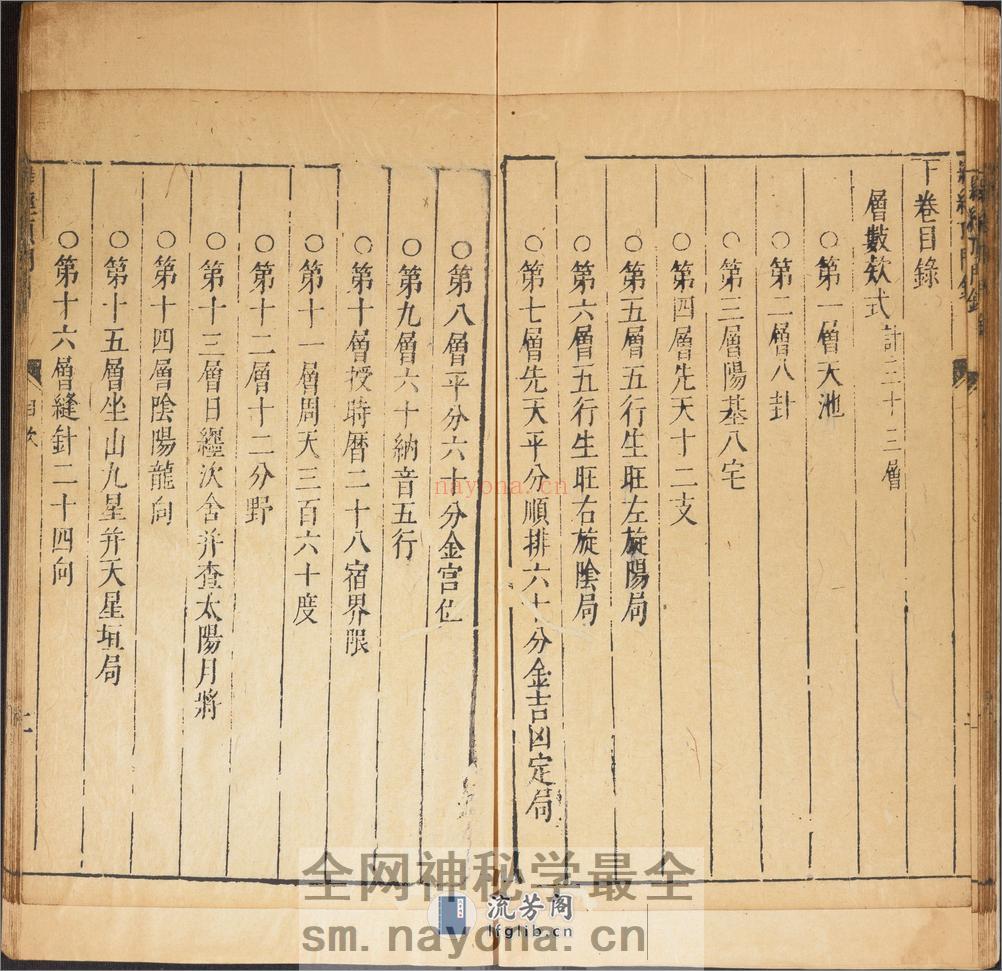 下卷目錄
層數欵式計三十三層
○第一層天池
○第二層八卦
○第三層陽基八宅
○第四層先天十二支
○第五層五行生旺左旋陽局
○第六層五行生旺右旋陰局
○第七層先天平分順排六十分金吉凶定局
○第八層平分六十分金宫位
○第九層六十納音五行
○第十層授時曆二十八宿界限
○第十一層周天三百六十度
○第十二層十二分野
○第十三層日纏次舍并查太陽月將
○第十四層陰陽龍向
○第十五層坐山九星并天星垣局
○第十六層縫針二十四向
目次
nayona.cn
全网神秘学最全
流芳阁
lfglib.cn
sm.nayona.cn